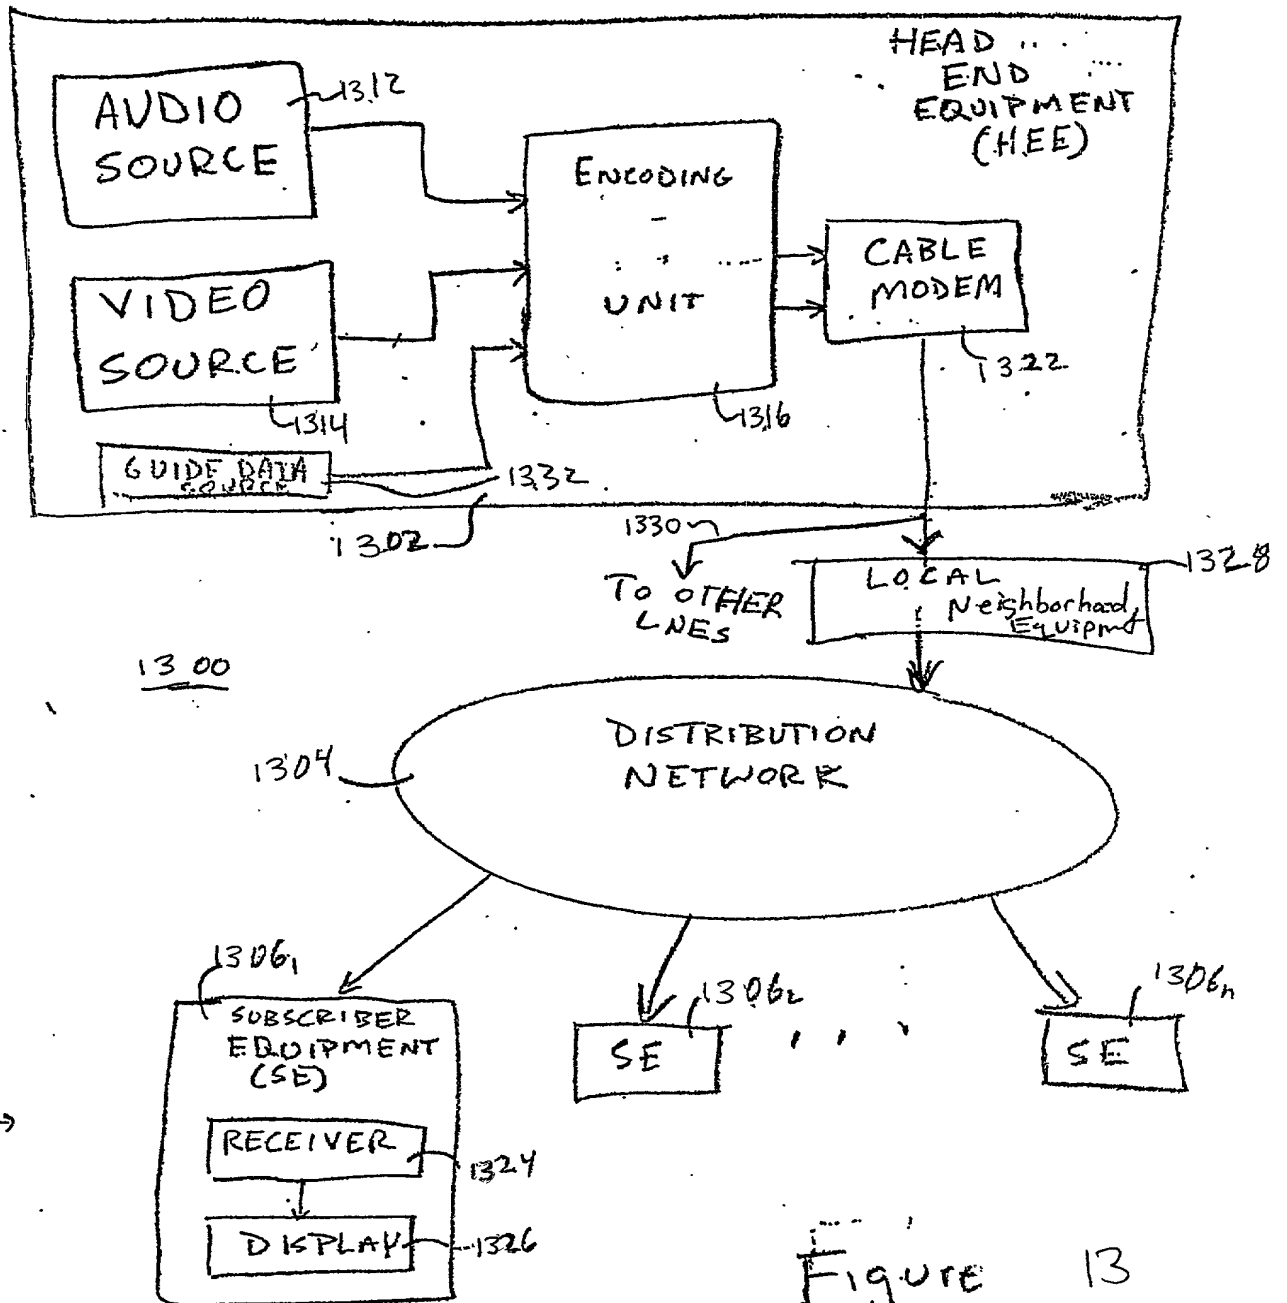 HEAD
END
EQUIPMENT
(HEE)
AUDIO
SOURCE
1312
ENCODING
UNIT
1316
CABLE
MODEM
1322
VIDEO
SOURCE
1314
GUIDE DATA
SOURCE
1332
1302
1330
TO OTHER
LNES
LOCAL
Neighborhood
Equipmt
1328
1300
DISTRIBUTION
NETWORK
1304
1306₁
SUBSCRIBER
EQUIPMENT
(SE)
RECEIVER
1324
DISPLAY
1326
1306₂
SE
1306n
SE
Figure 13